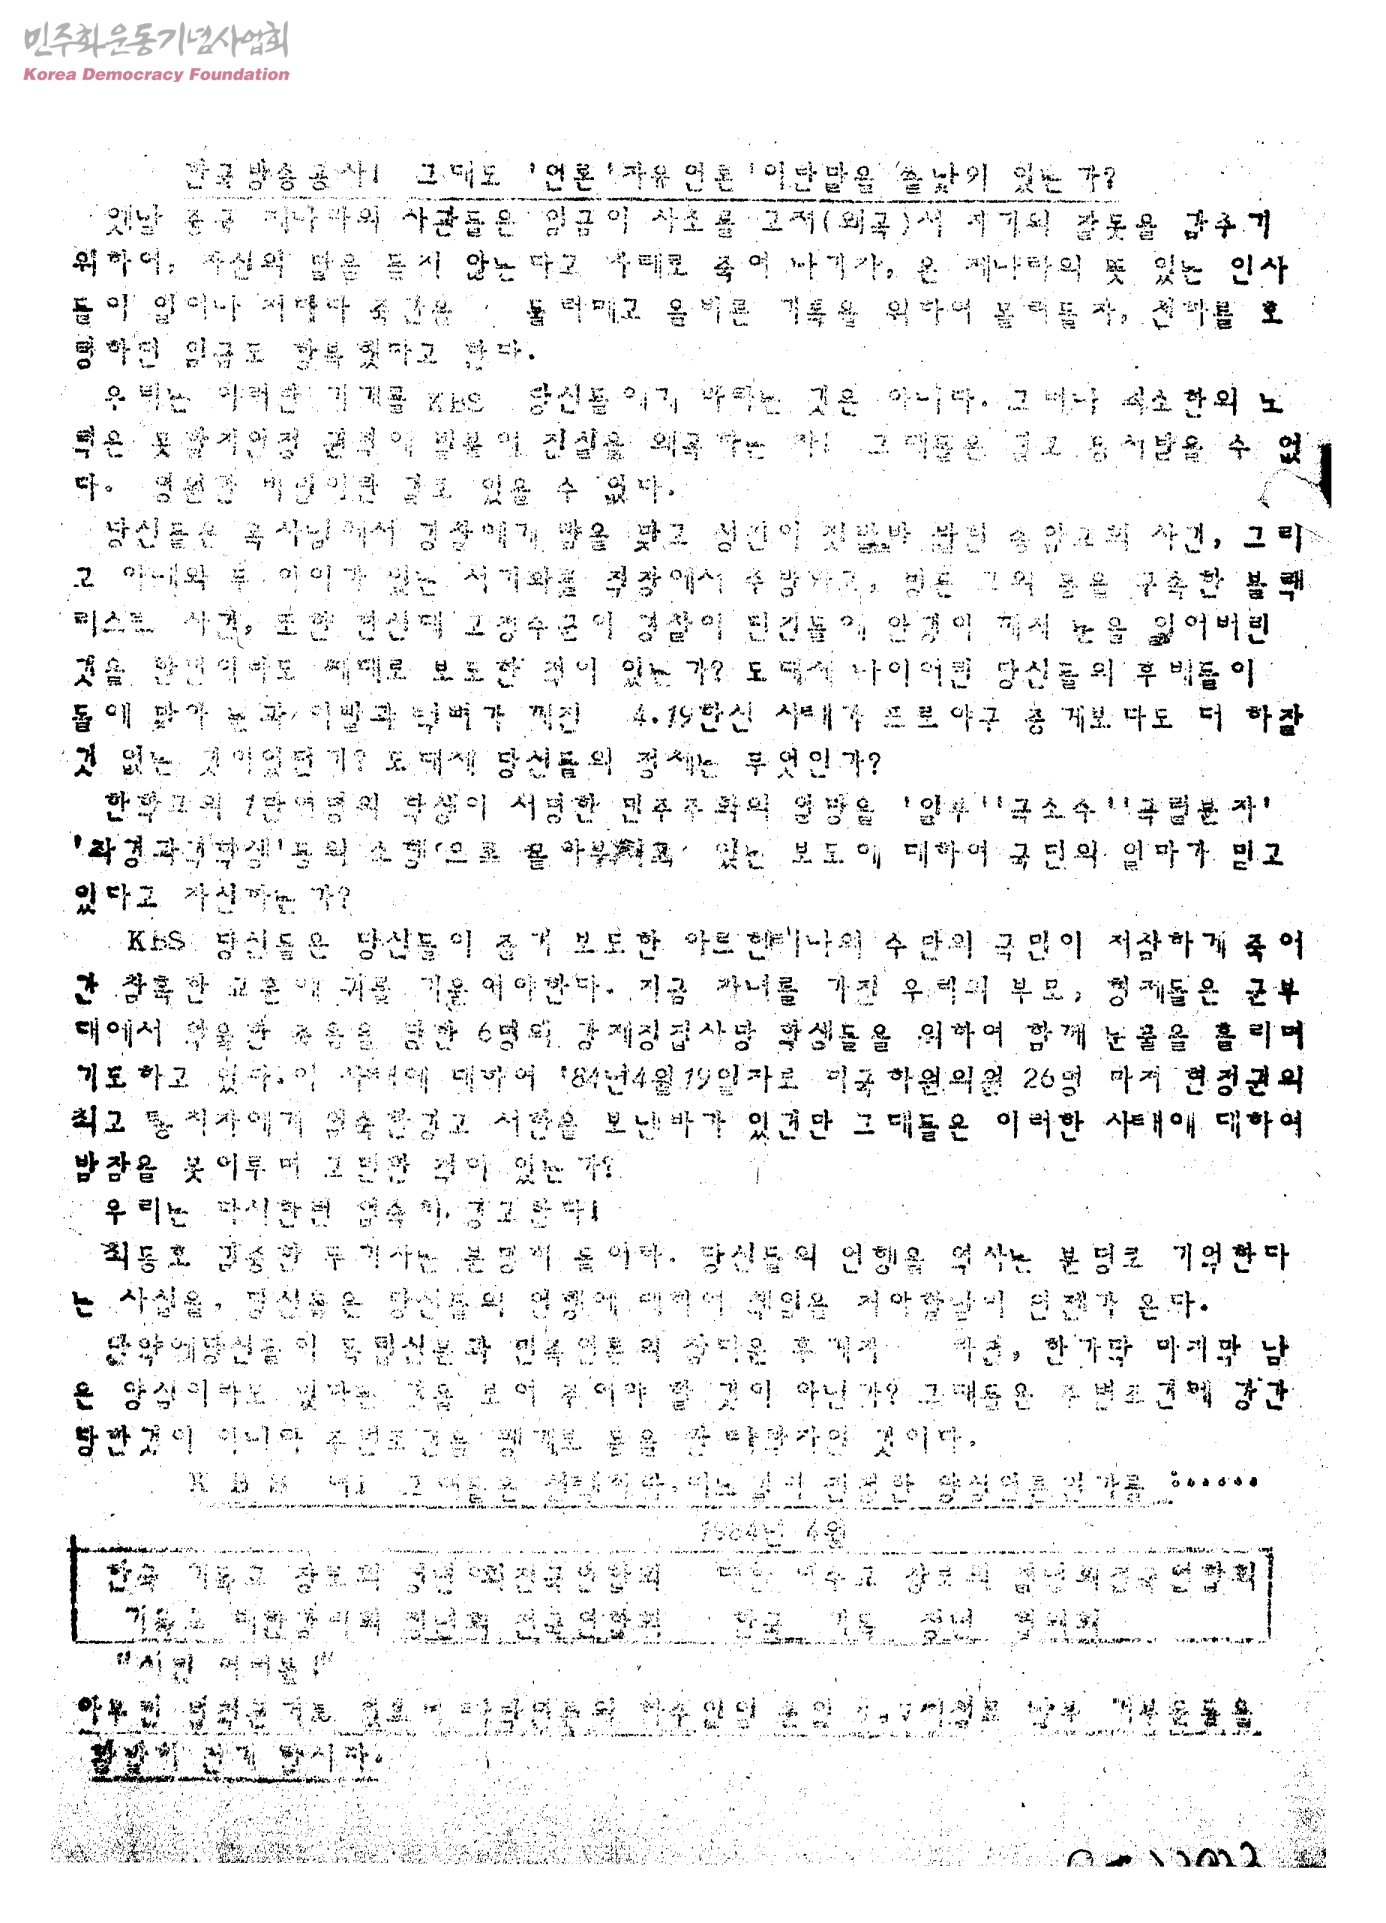 민주화운동기념사업회
Korea Democracy Foundation
한국방송공사! 그대도 '언론'자유언론'이란말을 쓸낯이 있는가?
옛날 중국 제나라의 사관들은 임금이 사초를 고쳐(왜곡)서 자기의 잘못을 감추기
위하여, 자신의 말을 듣지 않는다고 차례로 죽여 나가자, 온 제나라의 뜻 있는 인사
들이 일어나 저마다 죽간을 둘러메고 올바른 기록을 위하여 몰려들자, 천하를 호
령하던 임금도 항복했다고 한다.
우리는 이러한 기개를 KBS 당신들에게 바라는 것은 아니다. 그러나 최소한의 노
력은 못할지언정 권력에 빌붙어 진실을 왜곡하는 자! 그대들은 결코 용서받을 수 없
다. 영원한 비밀이란 결코 있을 수 없다.
당신들은 목사님에서 경찰에게 뺨을 맞고 성전이 짓밟 송암교회 사건, 그리
고 아내와 두 아이가 있는 서기화를 직장에서 추방하고, 병든 그의 몸을 구속한 블랙
리스트 사건, 또한 한신대 고정수군이 경찰이 던진돌에 안경이 깨져 눈을 잃어버린
것을 한번이라도 제대로 보도한 적이 있는가? 도대체 나이어린 당신들의 후배들이
돌에 맞아 눈과 이빨과 턱뼈가 깨진 4.19한신 사태가 프로야구 중계보다도 더 하잘
것 없는 것이었던가? 도대체 당신들의 정체는 무엇인가?
한학교의 1만여명의 학생이 서명한 민주주화의 열망을 '일부''극소수''극렬분자'
'좌경과격학생'등의 소행으로 몰아부치고 있는 보도에 대하여 국민의 얼마가 믿고
있다고 자신하는가?
KBS 당신들은 당신들이 중계 보도한 아르헨티나의 수만의 국민이 처참하게 죽어
간 참혹한 교훈에 귀를 기울여야한다. 지금 자녀를 가진 우리의 부모, 형제들은 군부
대에서 억울한 죽음을 당한 6명의 강제징집사망 학생들을 위하여 함께 눈물을 흘리며
기도하고 있다.이 사태에 대하여 '84년4월19일자로 미국하원의원 26명 까지 현정권의
최고 통치자에게 엄숙한경고 서한을 보낸바가 있건만 그대들은 이러한 사태에 대하여
밤잠을 못이루며 고민한 적이 있는가?
우리는 다시한번 엄숙히 경고한다!
최동호 김충한 두기자는 분명히 들어라. 당신들의 언행을 역사는 분명코 기억한다
는 사실을, 당신들은 당신들의 언행에 대하여 책임을 져야할날이 언젠가 온다.
만약에당신들이 독립신문과 민족언론의 참다운 후계자 라면, 한가닥 마지막 남
은 양심이라도 있다는 것을 보여 주어야 할 것이 아닌가? 그대들은 주변조건에 강간
당한것이 아니라 주변조건을 핑계로 몸을 판 타락자인 것이다.
K B S 여! 그대들은 선택하라.어느길이 진정한 양심언론인가를 :......
1984년 4월
한국 기독교 장로회 청년회전국연합회 대한 예수교 장로회 청년회전국연합회
기독교 대한감리회 청년회 전국연합회 한국 기독 청년 협의회
"시민 여러분!"